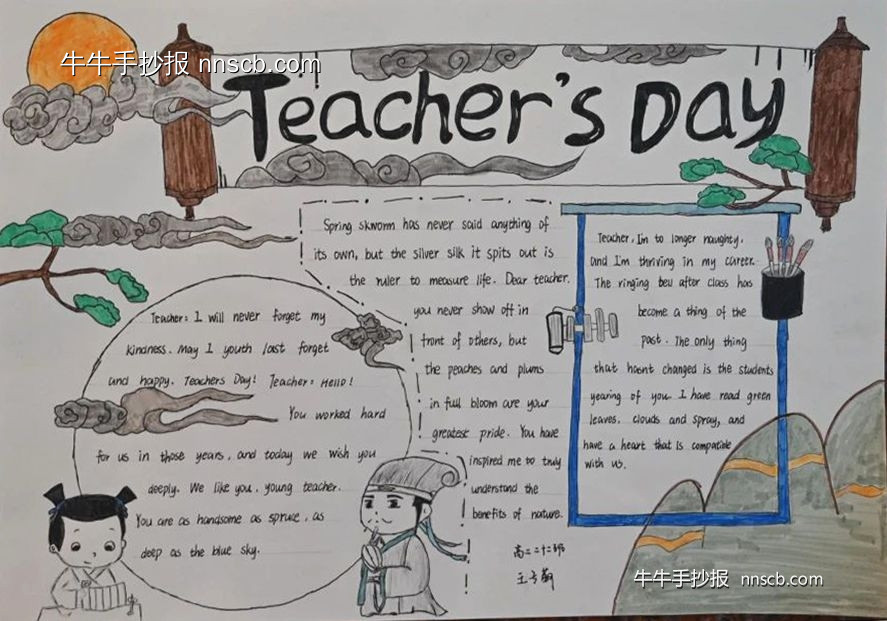 牛牛手抄报 nnscb.com
Teacher's Day
Spring skworm has never said anything of
its own, but the silver silk it spits out is
the ruler to measure life. Dear teacher,
you never show off in
front of others, but
the peaches and plums
in full bloom are your
greatest pride. You have
inspired me to truly
understand the
benefits of nature.
高二二十二班
Teacher, I'm to longer naughty,
and I'm thriving in my career.
The ringing bell after class has
become a thing of the
past. The only thing
that hasn't changed is the students
yearing of you. I have read green
leaves, clouds and spray, and
have a heart that is compatible
with us.
Teacher: I will never forget my
kindness. May I youth last forget
and happy. Teachers Day! Teacher: Hello!
You worked hard
for us in those years, and today we wish you
deeply. We like you, young teacher.
You are as handsome as spruce, as
deep as the blue sky.
牛牛手抄报 nnscb.com